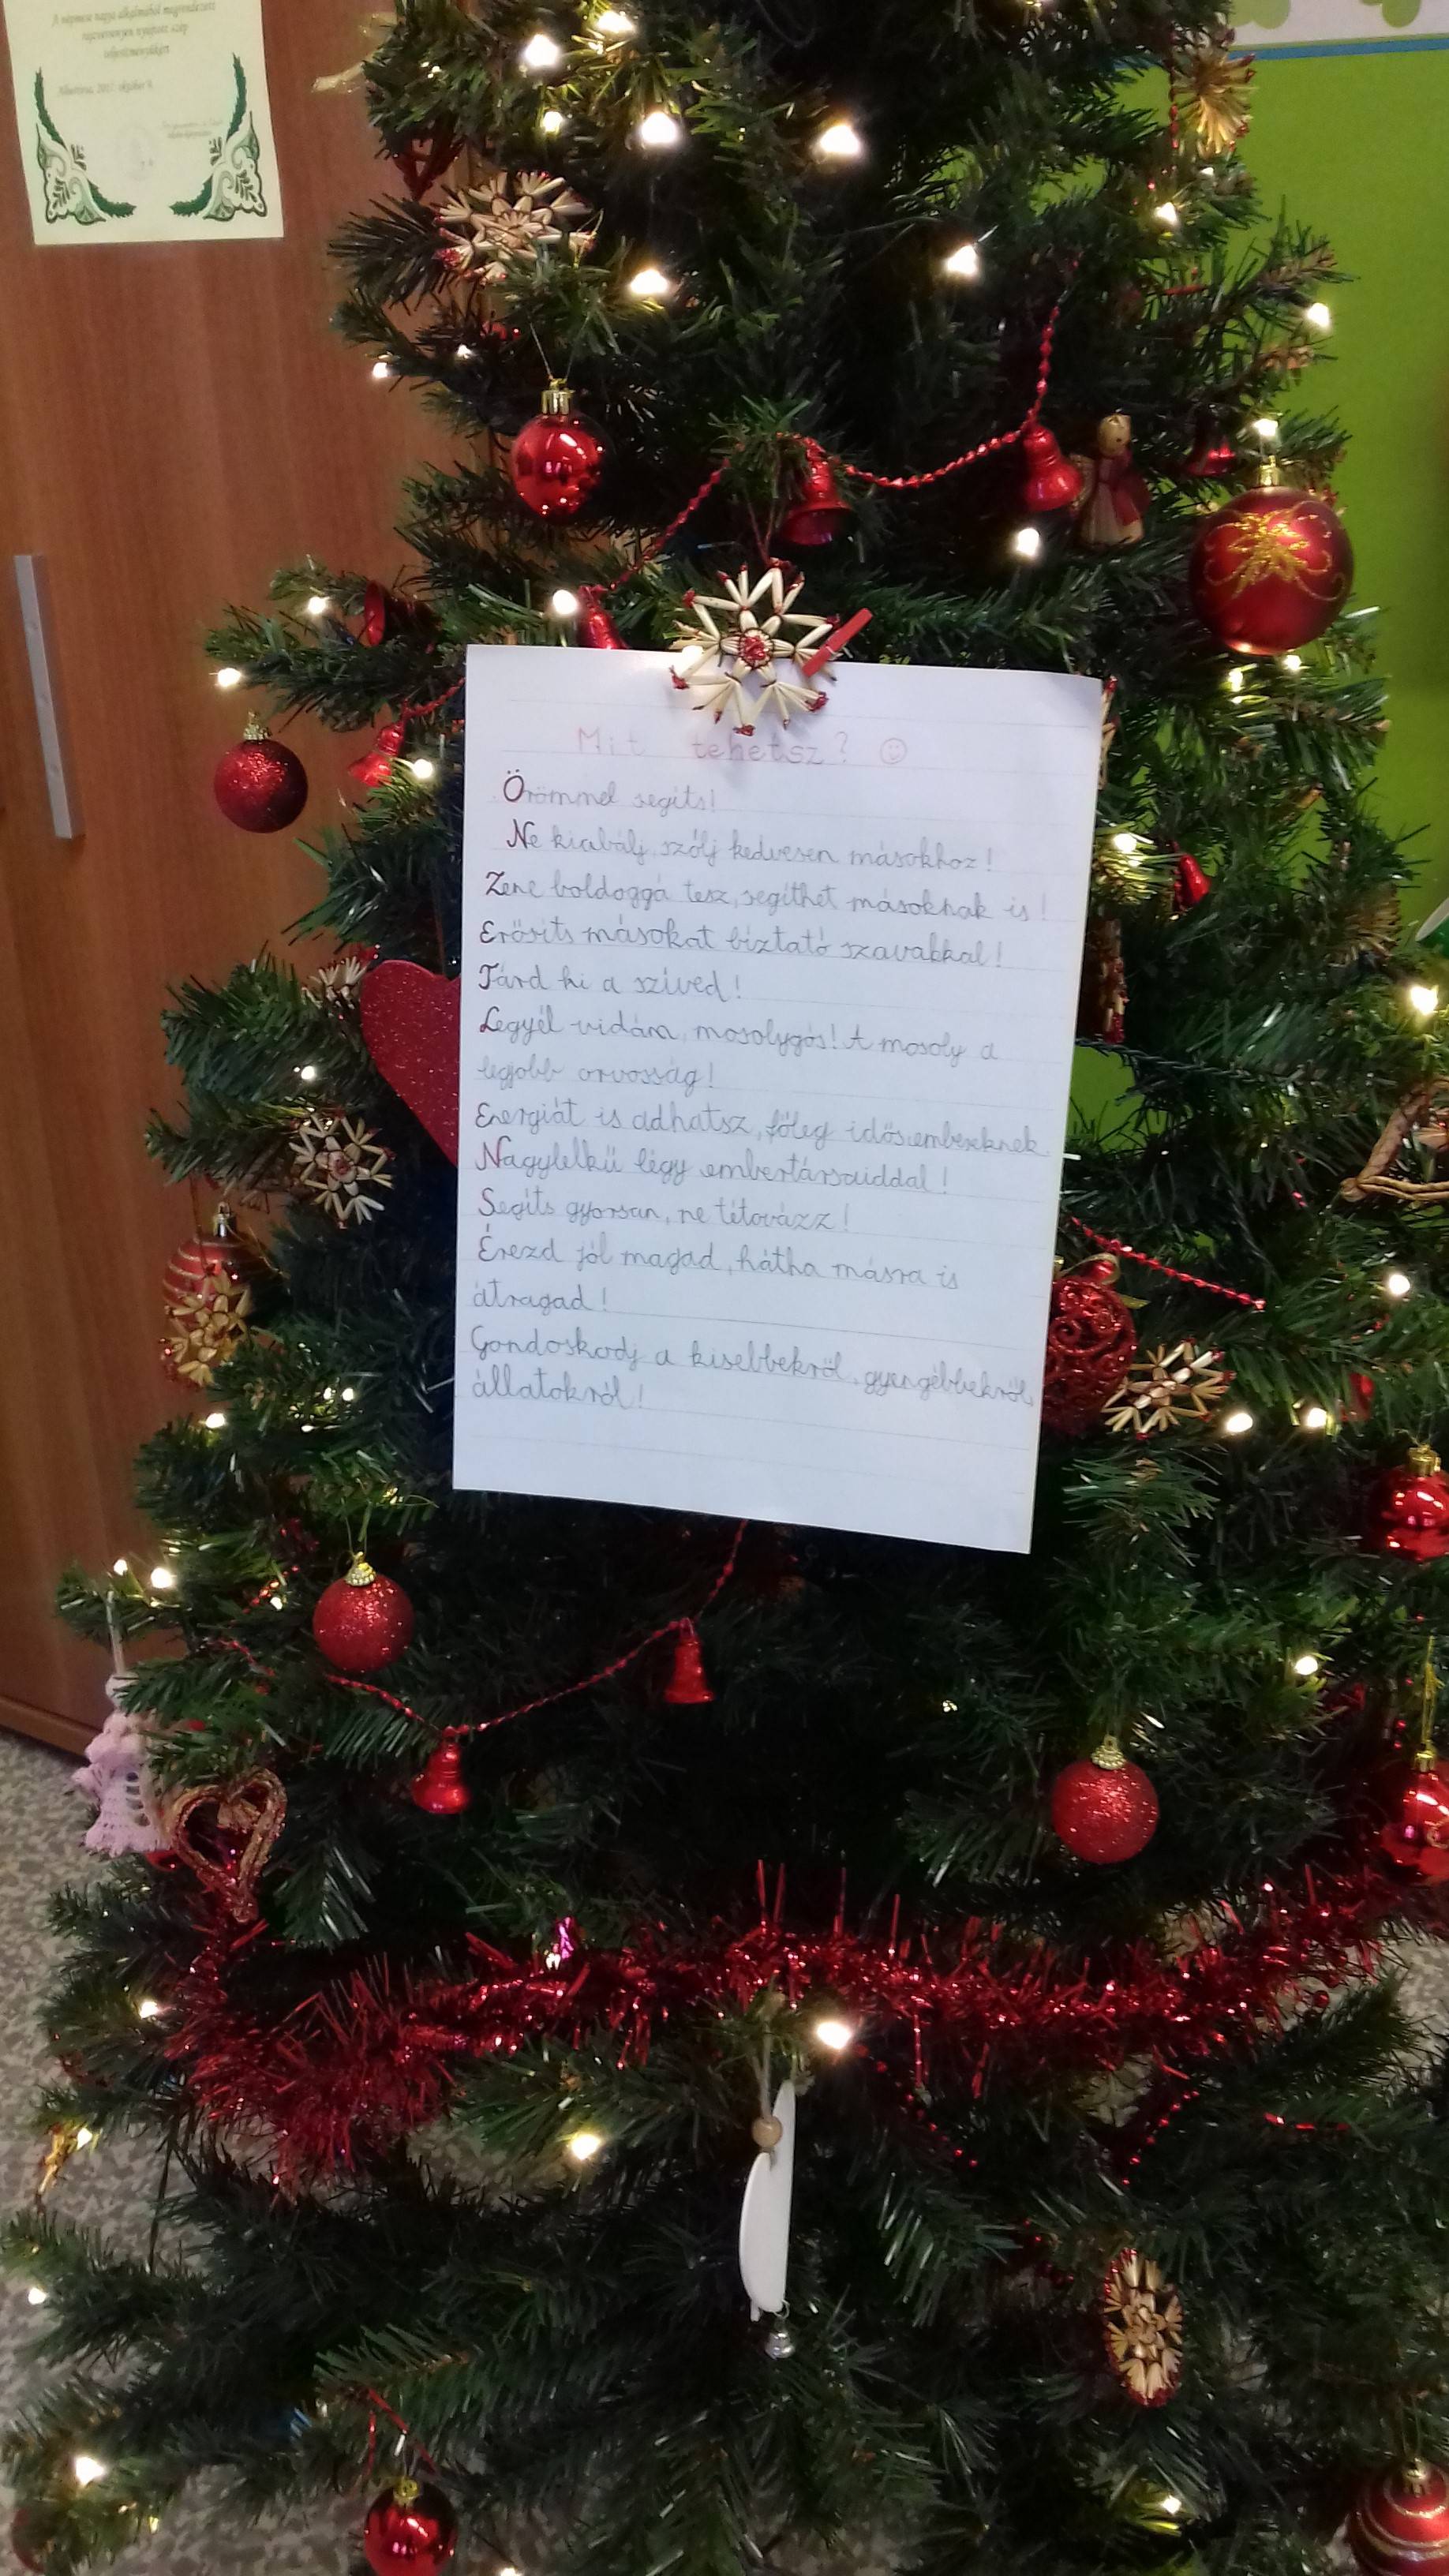 A népmese napja alkalmából megrendezett
rajzversenyen nyújtott szép
teljesítményükért
Albertirsa, 2017. október 9.
Mit tehetsz? ☺
Örömmel segíts!
Ne kiabálj, szólj kedvesen másokhoz!
Zene boldoggá tesz, segíthet másoknak is!
Erősíts másokat bíztató szavakkal!
Tárd ki a szíved!
Legyél vidám, mosolygós! A mosoly a
legjobb orvosság!
Energiát is adhatsz, főleg idős embereknek.
Nagylelkű légy embertársaiddal!
Segíts gyorsan, ne tétovázz!
Érezd jól magad, hátha másra is
átragad!
Gondoskodj a kisebbekről, gyengébbekről,
állatokról!